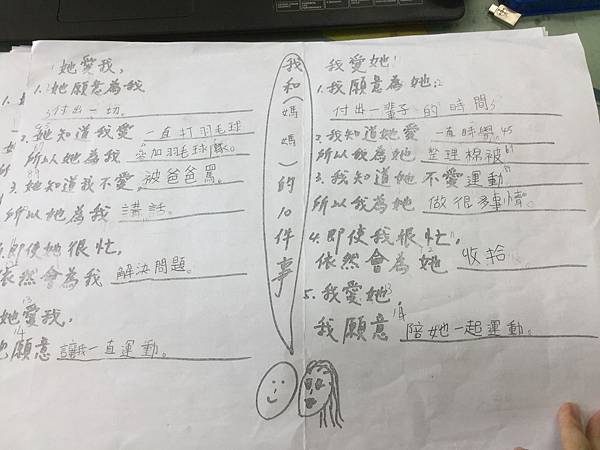 她愛我,
1. 她願意為我
付出一切。
2. 她知道我愛 一直打羽毛球
所以她為我 參加羽毛球隊。
3. 她知道我不愛 被爸爸罵。
所以她為我 講話。
即使她很忙,
依然會為我 解決問題。
她愛我,
她願意 讓我一直運動。
我和(媽媽)的10件事
我愛她!
1. 我願意為她
付出一輩子的時間
2. 我知道她愛 一直睡覺
所以我為她 整理棉被
3. 我知道她不愛運動
所以我為她 做很多事情。
4. 即使我很忙,
依然會為她 收拾
5. 我愛她
我願意 陪她一起運動。